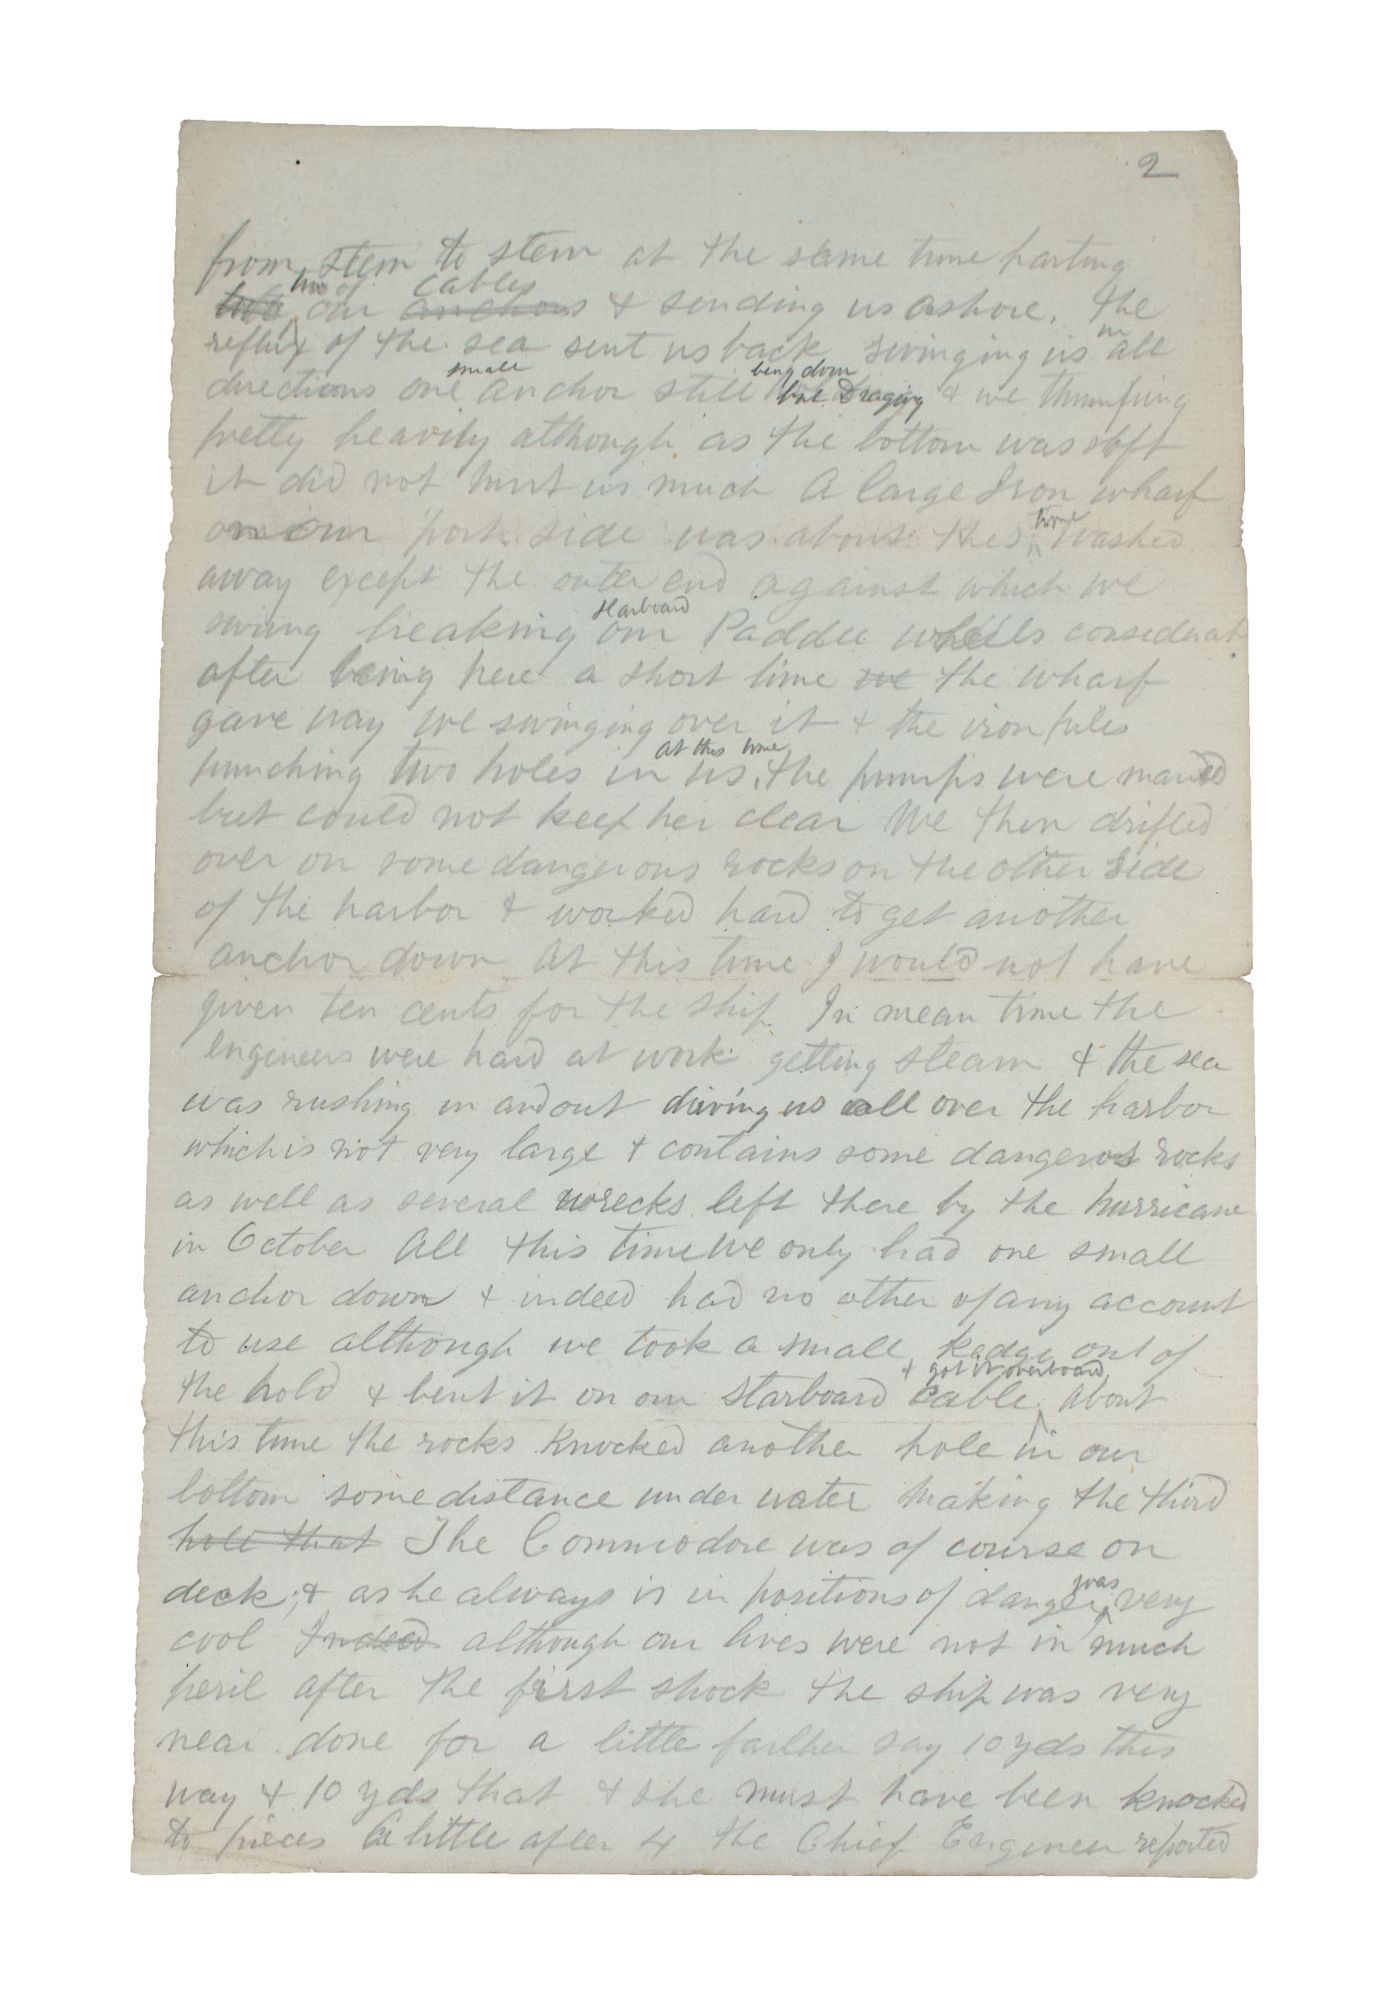 2
from stem to stern at the same time parting
two two of our anchors cables & sending us ashore. The
reflux of the sea sent us back swinging us in all
directions one small anchor still being down but Draging & we thumping
pretty heavily although as the bottom was soft
it did not hurt us much A large Iron wharf
on our port side was about this time washed
away except the outer end against which we
swung breaking our starboard Paddle wheels considerab
after being here a short time we the wharf
gave way we swinging over it & the iron piles
punching two holes in us, at this time the pumps were maned
but could not keep her clear We then drifted
over on some dangerous rocks on the other side
of the harbor & worked hard to get another
anchor down At this time I would not have
given ten cents for the ship In mean time the
engineers were hard at work getting steam & the sea
was rushing in and out driving us all over the harbor
which is not very large & contains some dangerous rocks
as well as several wrecks left there by the hurricane
in October All this time we only had one small
anchor down & indeed had no other of any account
to use although we took a small kedge out of
the hold & bent it on our starboard cable & got it overboard About
this time the rocks knocked another hole in our
bottom some distance under water making the third
hole that The Commodore was of course on
deck, & as he always is in positions of danger was very
cool Indeed although our lives were not in much
peril after the first shock the ship was very
near done for a little farther say 10 yds this
way & 10 yds that & she must have been knocked
to pieces A little after 4 the Chief Engineer reported